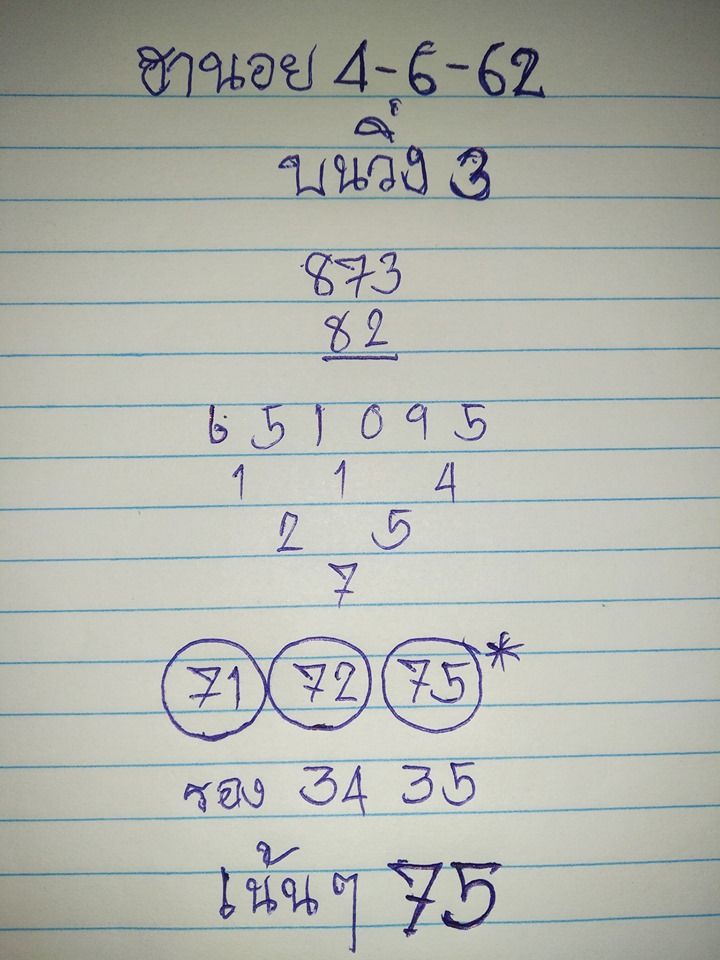 ฮานอย 4-6-62
บนวิ่ง 3
873
82
6 5 1 0 9 5
1 1 4
2 5
7
71 72 75*
รอง 34 35
เน้นๆ 75